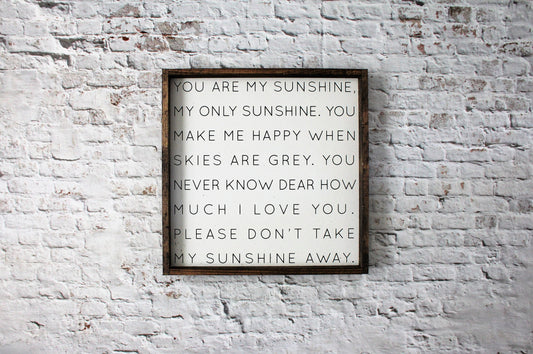 YOU ARE MY SUNSHINE,
MY ONLY SUNSHINE. YOU
MAKE ME HAPPY WHEN
SKIES ARE GREY. YOU
NEVER KNOW DEAR HOW
MUCH I LOVE YOU.
PLEASE DON'T TAKE
MY SUNSHINE AWAY.